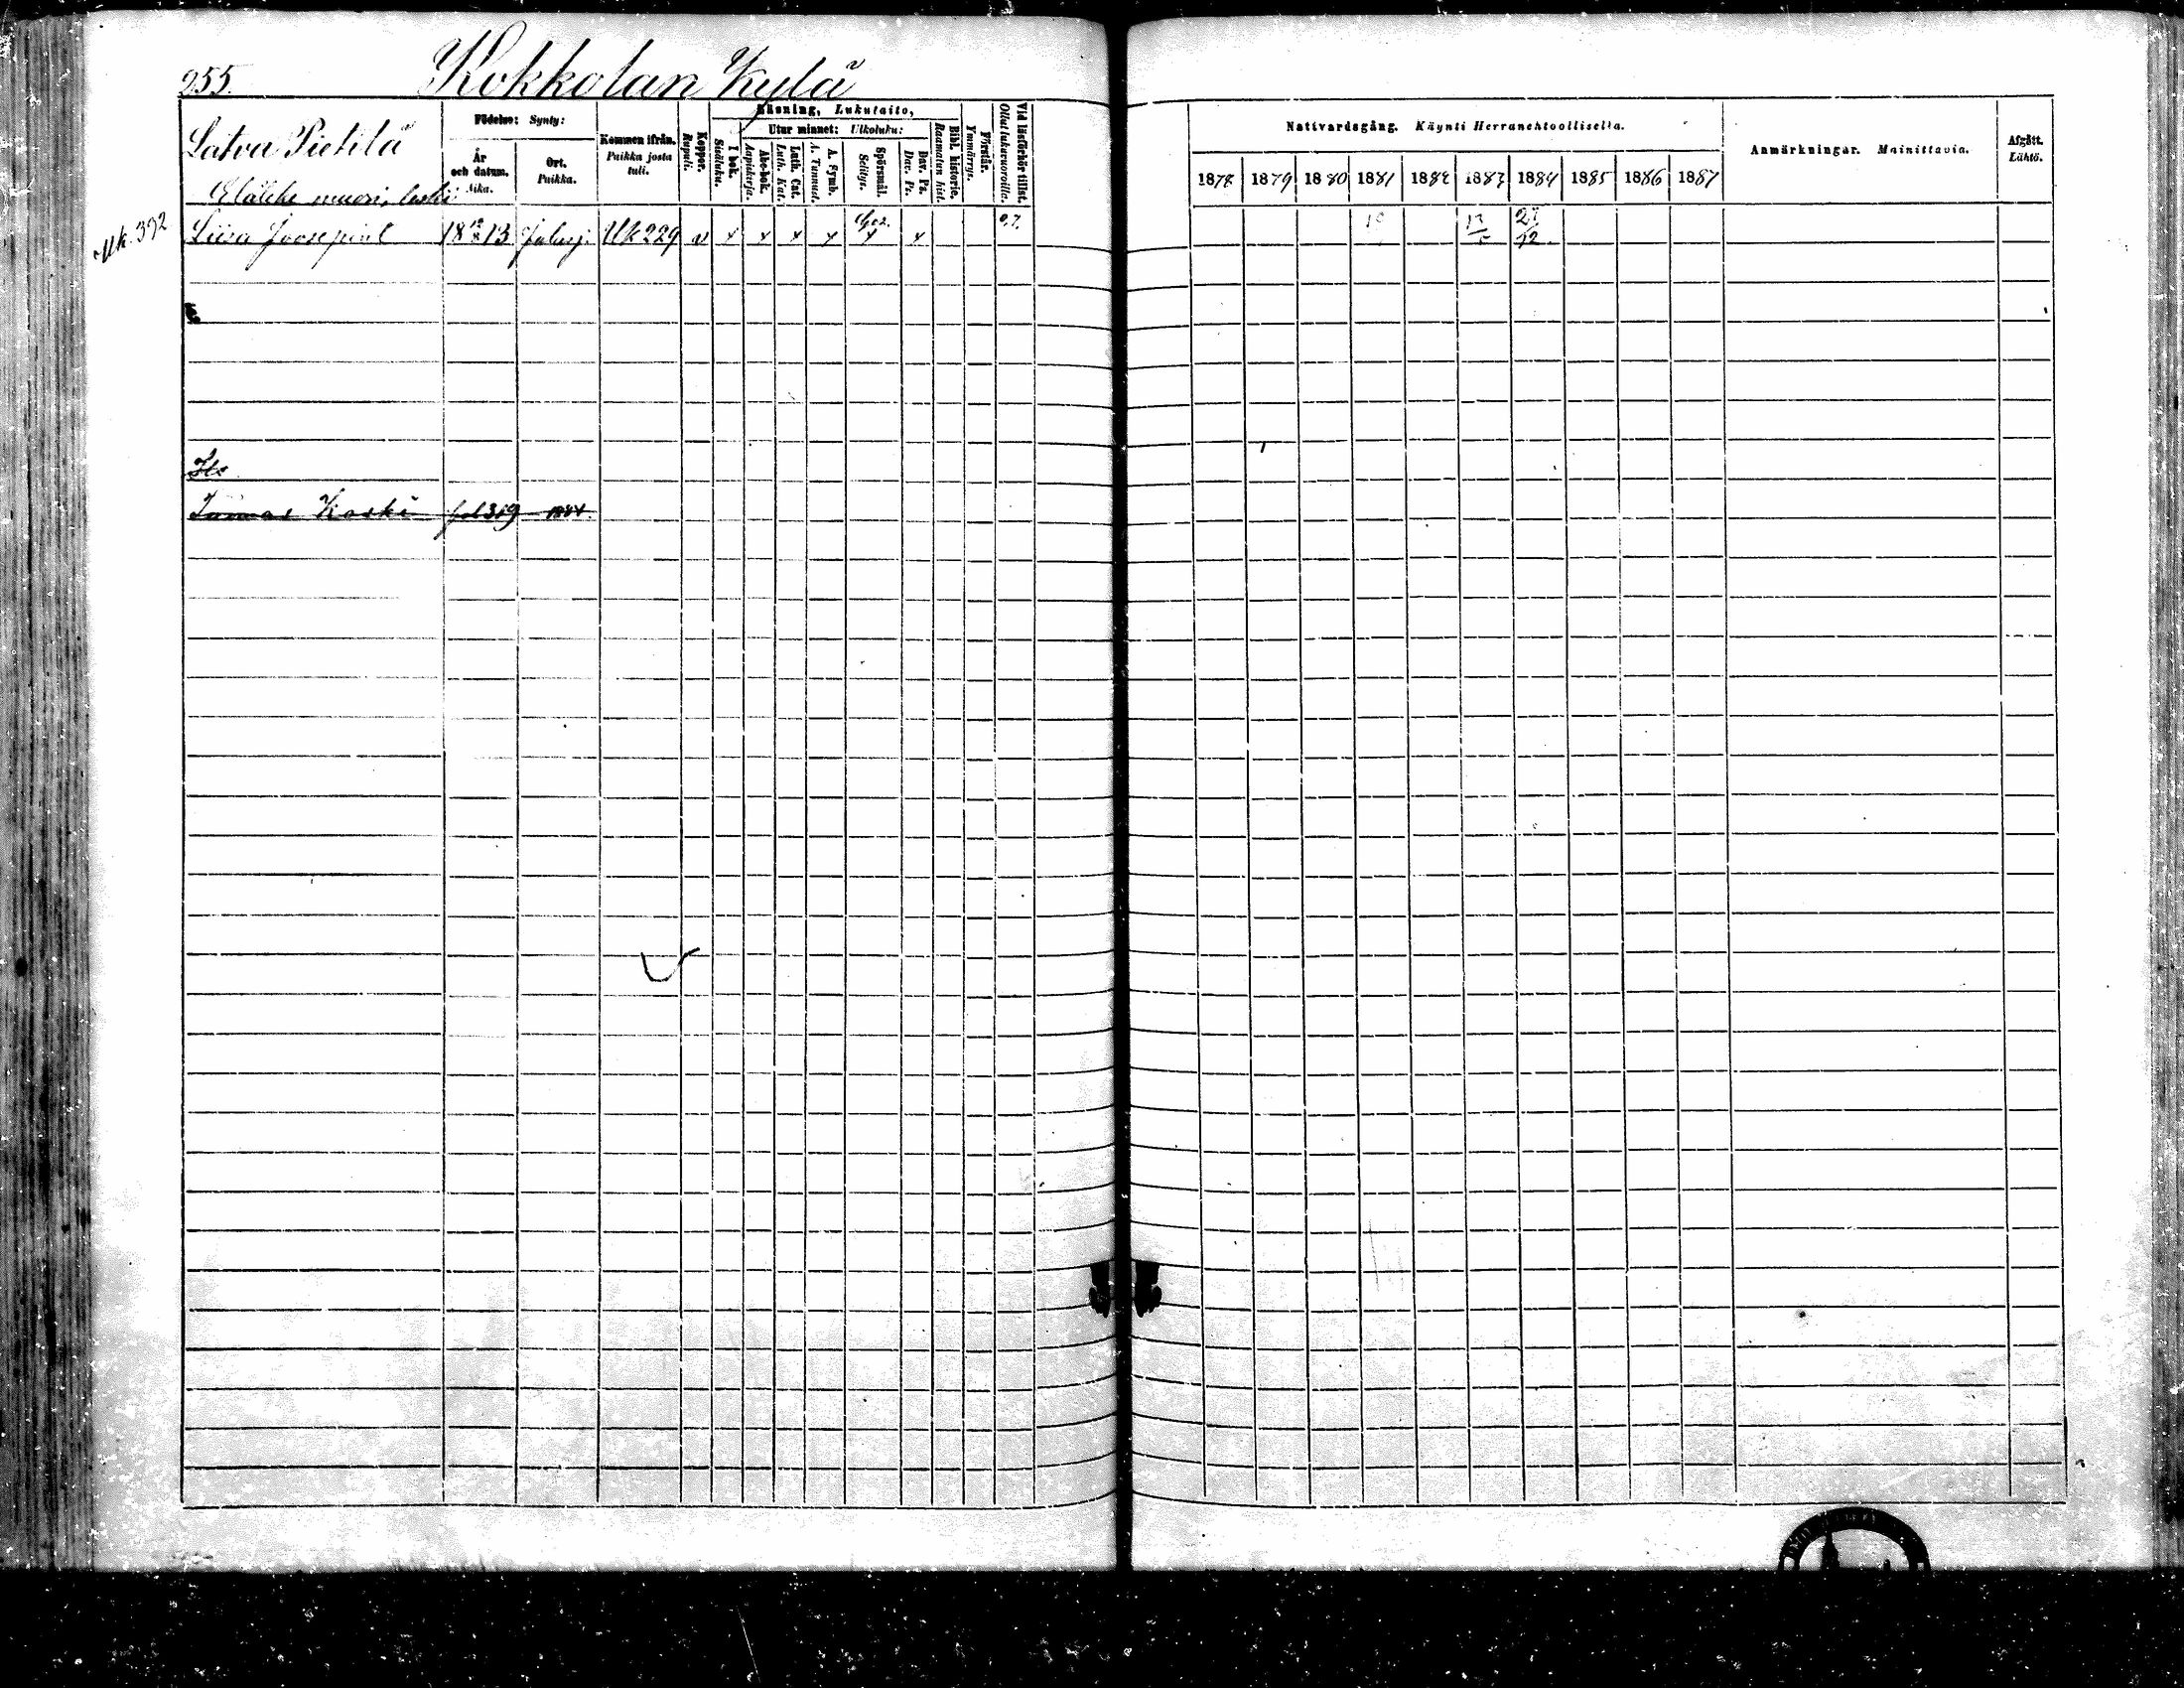 255.
Kokkolan Kylä
Latva Pietilä
Födelse: Synty:
År och datum. Aika.
Ort. Paikka.
Kommen ifrån. Paikka josta tuli.
Koppor. Rupuli.
Läsning, Lukutaito,
I bok. Sisäluku.
Utur minnet: Ulkoluku:
Abc-bok. Aapiskirja.
Luth. Cat. Luth. Kat.
A. Symb. A. Tunnust.
Spörsmål. Selitys.
Dav. Ps. Dav. Ps.
Bibl. historie. Raamatun hist.
Förstår. Ymmärrys.
Vid läsförhör tillst. Ollut lukuvuoroilla.
Nattvardsgång. Käynti Herranehtoollisella.
1878 1879 1880 1881 1882 1883 1884 1885 1886 1887
Anmärkningar. Mainittavia.
Afgått. Lähtö.
muori, leski
Uk. 392
Liisa Joosepint 18 13 Jalasj. Uk 229 v x x x x x x
27/12
Koski fol 319 1884.